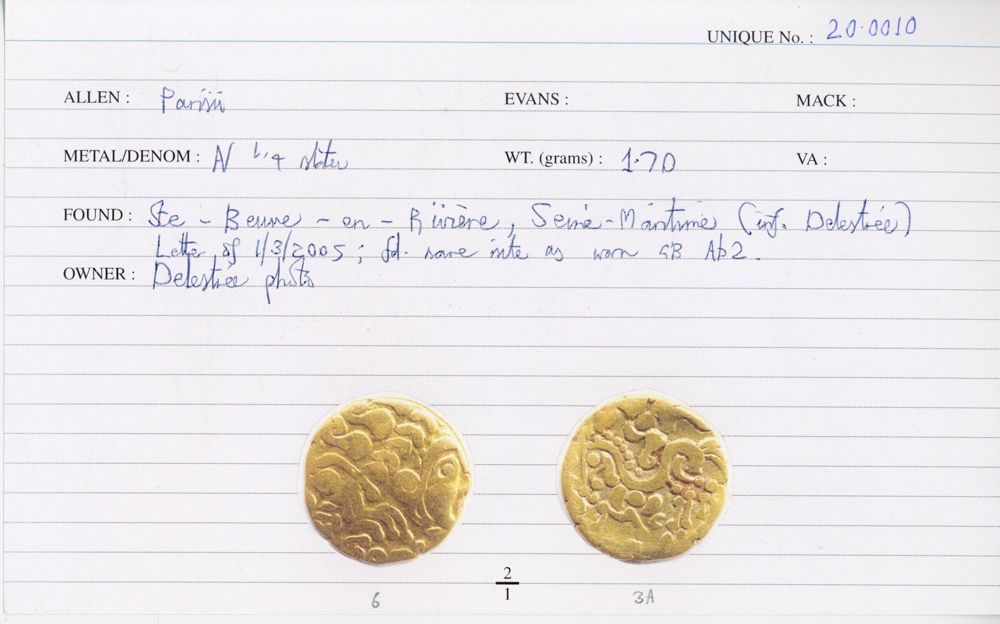 UNIQUE No. : 20.0010
ALLEN : Parisii EVANS : MACK :
METAL/DENOM : N 1/4 stater WT. (grams) : 1.70 VA :
FOUND : Ste - Beuve - en - Rivière, Seine-Maritime (inf. Delestrée)
Letter of 1/3/2005 ; fd. same site as worn GB Ab2.
OWNER : Delestrée photo
2
1
6 3A